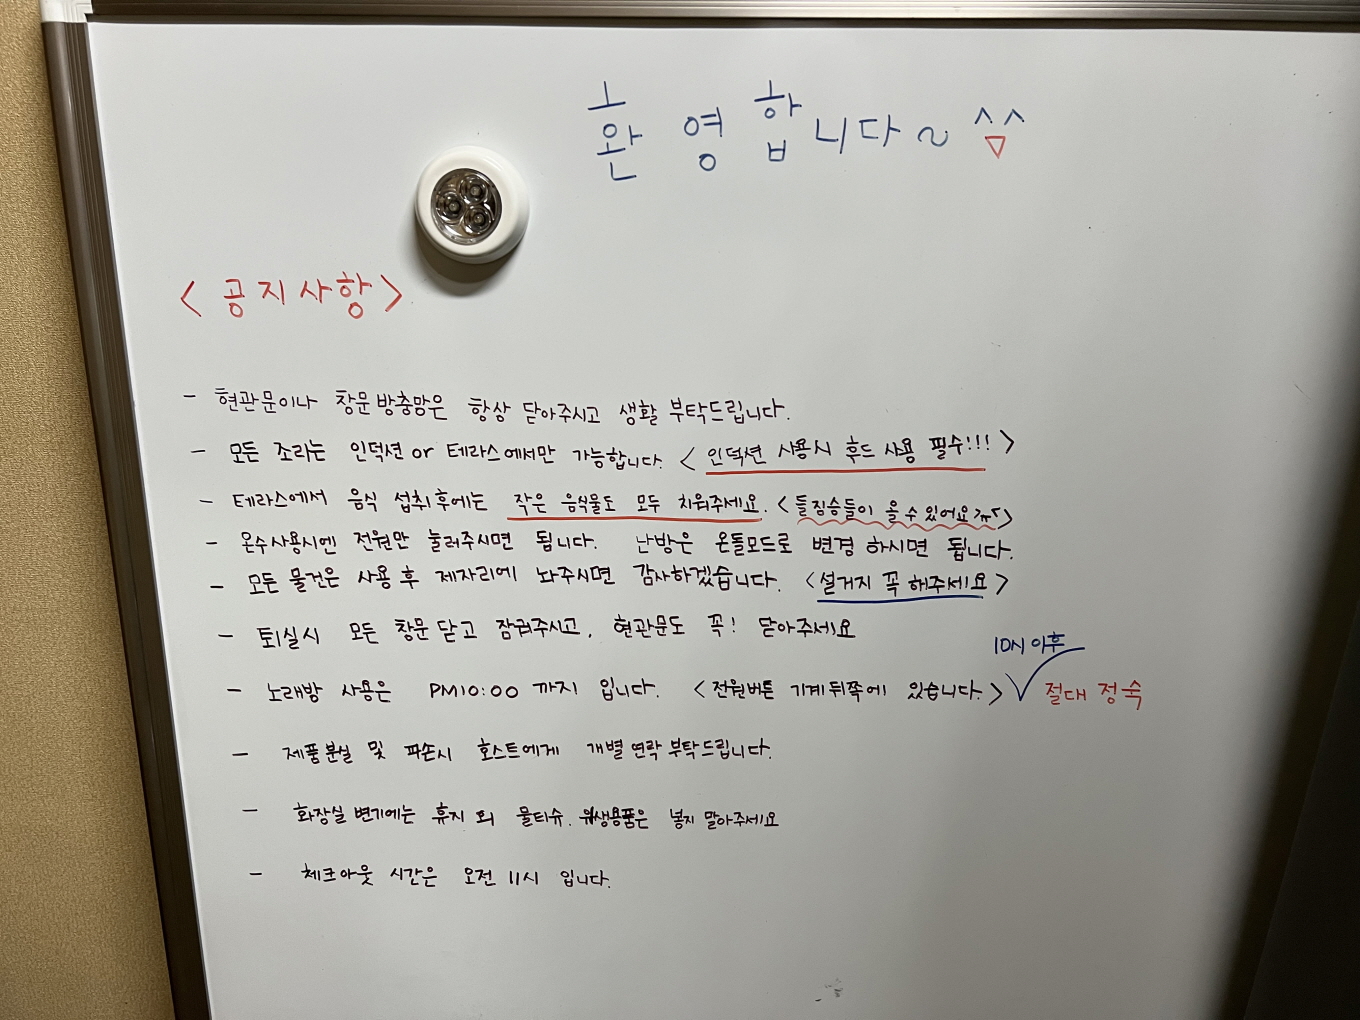 환영합니다~ ^^
<공지사항>
- 현관문이나 창문방충망은 항상 닫아주시고 생활 부탁드립니다.
- 모든 조리는 인덕션 or 테라스에서만 가능합니다. <인덕션 사용시 후드 사용 필수!!!>
- 테라스에서 음식 섭취후에는 작은 음식물도 모두 치워주세요. <들짐승들이 올 수 있어요ㅠㅜ>
- 온수사용시엔 전원만 눌러주시면 됩니다. 난방은 온돌모드로 변경 하시면 됩니다.
- 모든 물건은 사용 후 제자리에 놔주시면 감사하겠습니다. <설거지 꼭 해주세요>
- 퇴실시 모든 창문 닫고 잠궈주시고, 현관문도 꼭! 닫아주세요
10시 이후
- 노래방 사용은 PM10:00 까지 입니다. <전원버튼 기계뒤쪽에 있습니다.> ✓ 절대 정숙
- 제품분실 및 파손시 호스트에게 개별 연락 부탁드립니다.
- 화장실 변기에는 휴지 외 물티슈. 위생용품은 넣지 말아주세요
- 체크아웃 시간은 오전 11시 입니다.